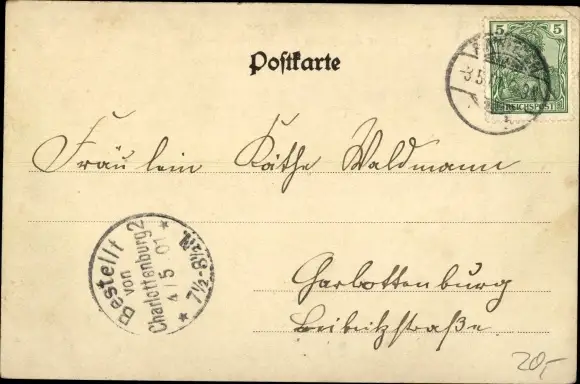 Postkarte
5 5
REICHSPOST
3.5.
Fräulein Käthe Waldmann
Bestellt
von
Charlottenburg 2
4/5 01
7½-8½N.
Charlottenburg
20,-